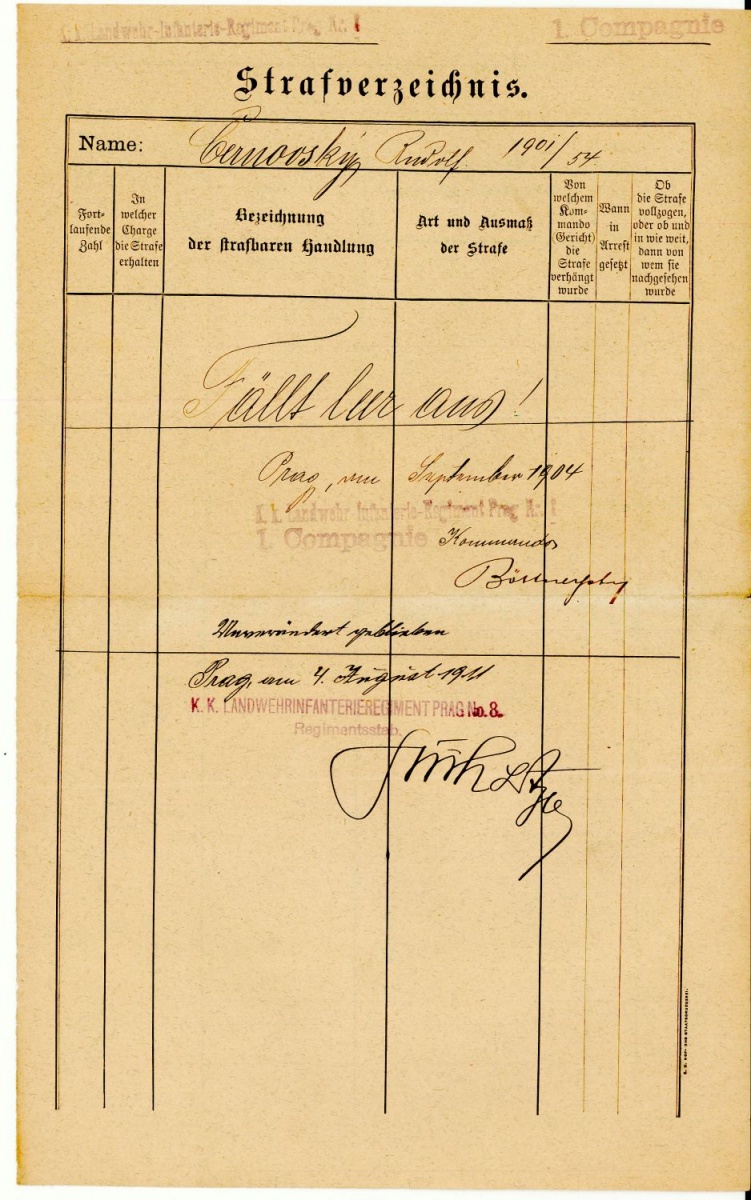 k. k. Landwehr-Infanterie-Regiment Prag Nr. 8
1. Compagnie
Strafverzeichnis.
Name: Černovský Rudolf 1901/54
Fort-
laufende
Zahl
In
welcher
Charge
die Strafe
erhalten
Bezeichnung
der strafbaren Handlung
Art und Ausmaß
der Strafe
Von
welchem
Kom-
mando
(Gericht)
die
Strafe
verhängt
wurde
Wann
in
Arrest
gesetzt
Ob
die Strafe
vollzogen,
oder ob und
in wie weit,
dann von
wem sie
nachgesehen
wurde
Fällt leer aus!
Prag, am September 1904
k. k. Landwehr Infanterie-Regiment Prag Nr. 8
1. Compagnie Kommando
Unverändert geblieben
Prag, am 4. August 1911
K. K. LANDWEHRINFANTERIEREGIMENT PRAG No. 8.
Regimentsstab.
K. K. HOF- UND STAATSDRUCKEREI.